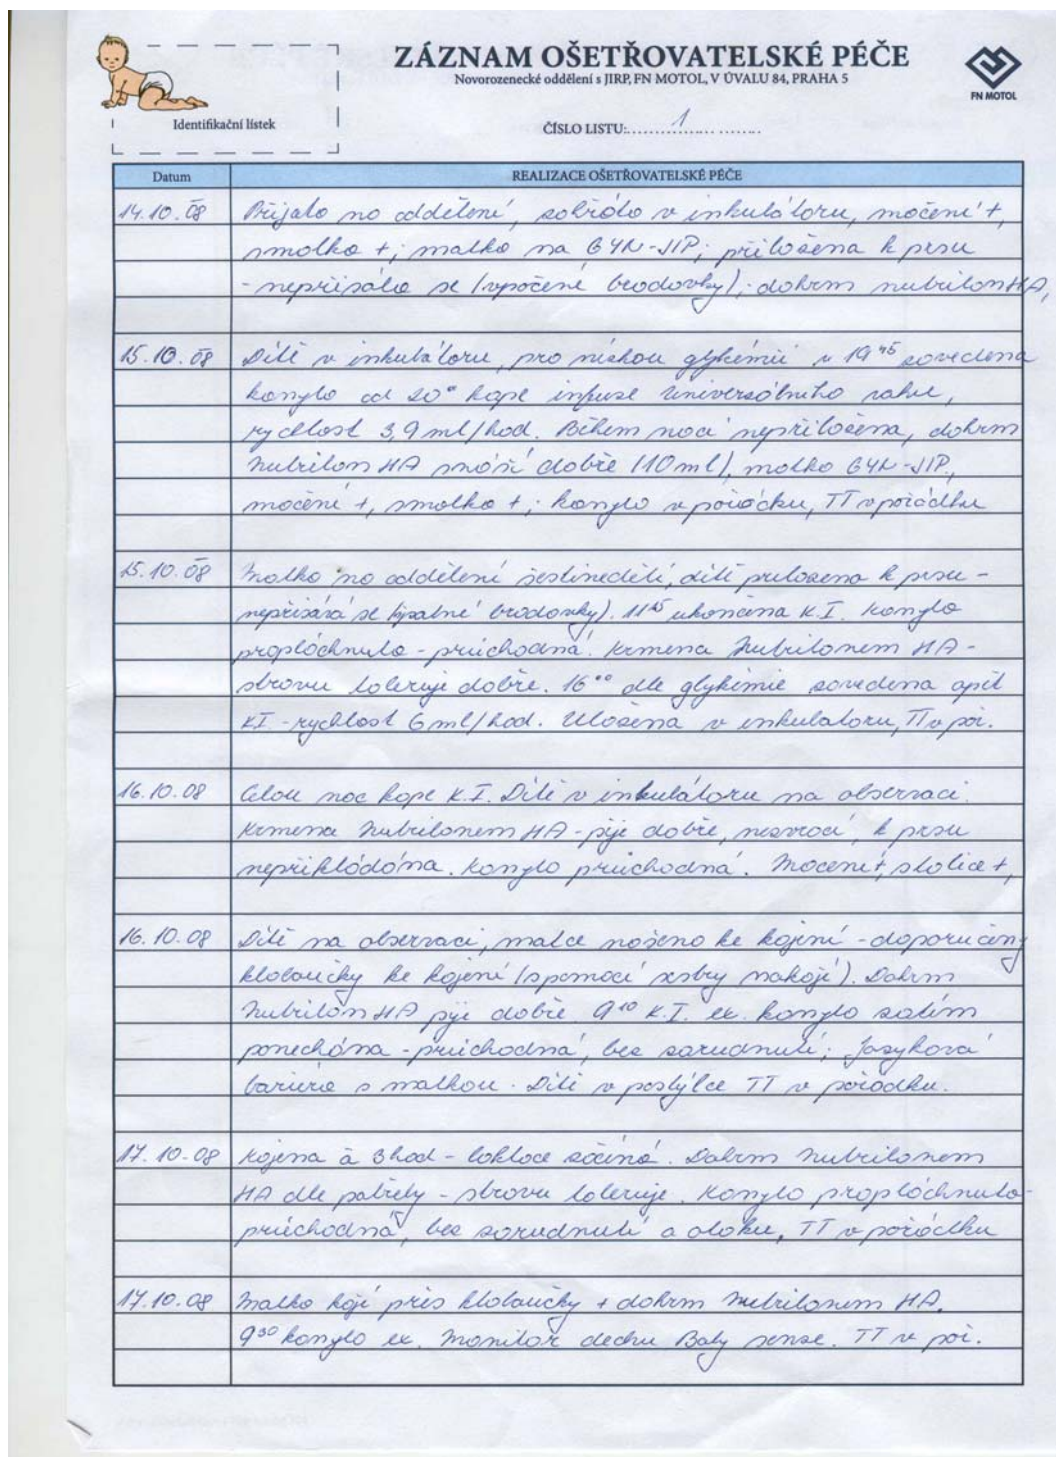 ZÁZNAM OŠETŘOVATELSKÉ PÉČE
Novorozenecké oddělení s JIRP, FN MOTOL, V ÚVALU 84, PRAHA 5
FN MOTOL
Identifikační lístek
ČÍSLO LISTU: 1
Datum REALIZACE OŠETŘOVATELSKÉ PÉČE
14.10.08 Přijato na oddělení, zahřáto v inkubátoru, močení +,
smolka +; matka na GYN-JIP; přiložena k prsu
- nepřisála se (vpáčené bradavky); dokrm nutrilon HA,
15.10.08 Dítě v inkubátoru, pro nízkou glykémii v 19 45 zavedena
kanyla od 20 00 kape infuse Univerzálního roztoku,
rychlost 3,9 ml/hod. Během noci nepřiložena, dokrm
Nutrilon HA snáší dobře (10 ml), matka GYN-JIP,
močení +, smolka +; kanyla v pořádku, TT v pořádku
15.10.08 Matka na oddělení šestinedělí, dítě přiloženo k prsu -
nepřisává se (špatné bradavky). 11 45 ukončena K.I. Kanyla
propláchnuta - průchodná. Krmena Nutrilonem HA -
stravu toleruje dobře. 16 00 dle glykémie zavedena opět
K.I - rychlost 6 ml/hod. Uložena v inkubátoru, TT v poř.
16.10.08 Celou noc kape K.I. Dítě v inkubátoru na observaci.
Krmena Nutrilonem HA - pije dobře, nezvrací, k prsu
nepřikládána. Kanyla průchodná. Močení +, stolice +,
16.10.08 Dítě na observaci, matce nošeno ke kojení - doporučeny
kloboučky ke kojení (s pomocí sestry nakojí). Dokrm
Nutrilon HA pije dobře 9 10 K.I. ex. kanyla zatím
ponechána - průchodná, bez zarudnutí; Jazyková
bariéra s matkou. Dítě v postýlce TT v pořádku.
17.10.08 Kojena à 3 hod - laktace začíná. Dokrm Nutrilonem
HA dle potřeby - stravu toleruje. Kanyla propláchnuta -
průchodná, bez zarudnutí a otoku, TT v pořádku
17.10.08 Matka kojí přes kloboučky + dokrm Nutrilonem HA.
9 30 kanyla ex. Monitor dechu Baby sense. TT v poř.